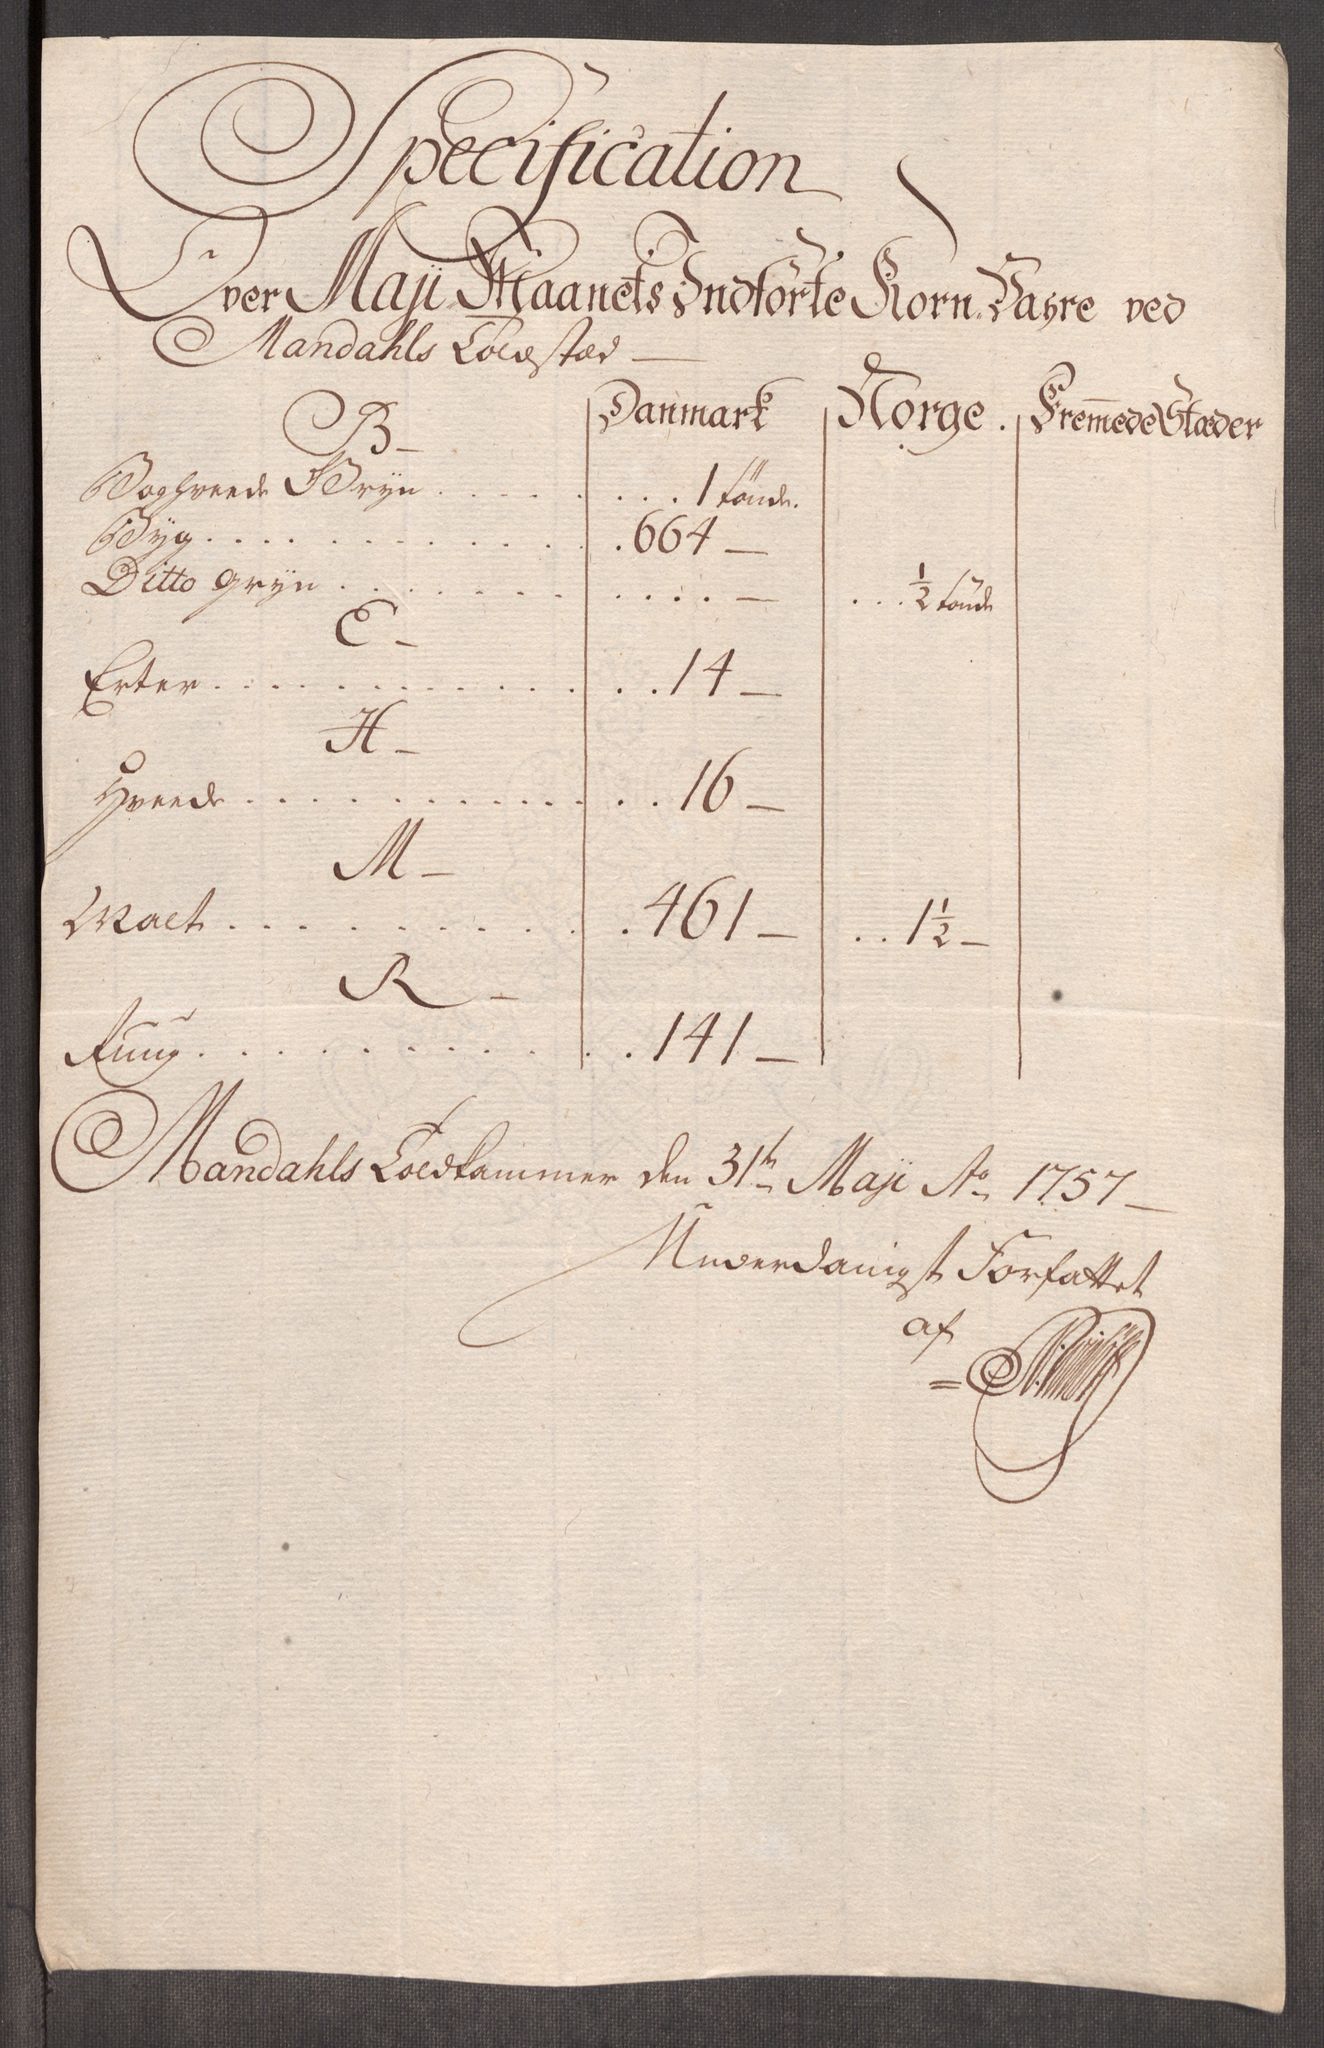 Specification
Over Maji Maanets Indförte Korn-Vahre ved
Mandahls Toldstæd
Danmark Norge. Fremmede Stæder
B
Boghveede Gryn . . . . . . . 1 tönde.
Byg . . . . . . . . . . 664 —
Ditto gryn . . . . . . . . . . — . . . ½ tönde
E
Erter . . . . . . . . . . 14 —
H
Hveede . . . . . . . . . . 16 —
M
Malt . . . . . . . . . . 461 — . . 1½ —
R
Ruug . . . . . . . . . . 141 —
Mandahls Toldkammer den 31th Maji Ao 1757
Underdanigst Forfattet
af